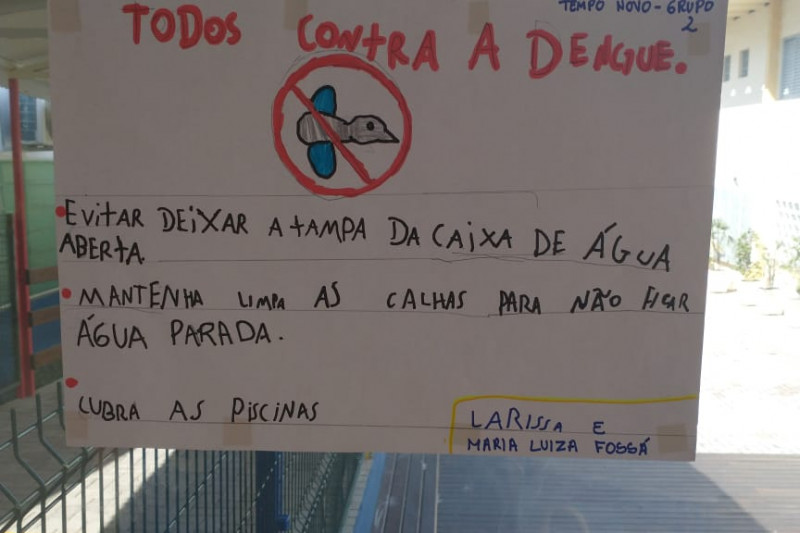 TEMPO NOVO - GRUPO
2
TODOS CONTRA A DENGUE.
• EVITAR DEIXAR A TAMPA DA CAIXA DE ÁGUA
ABERTA
• MANTENHA LIMPA AS CALHAS PARA NÃO FICAR
ÁGUA PARADA.
• CUBRA AS PISCINAS
LARISSA E
MARIA LUIZA FOGGÁ